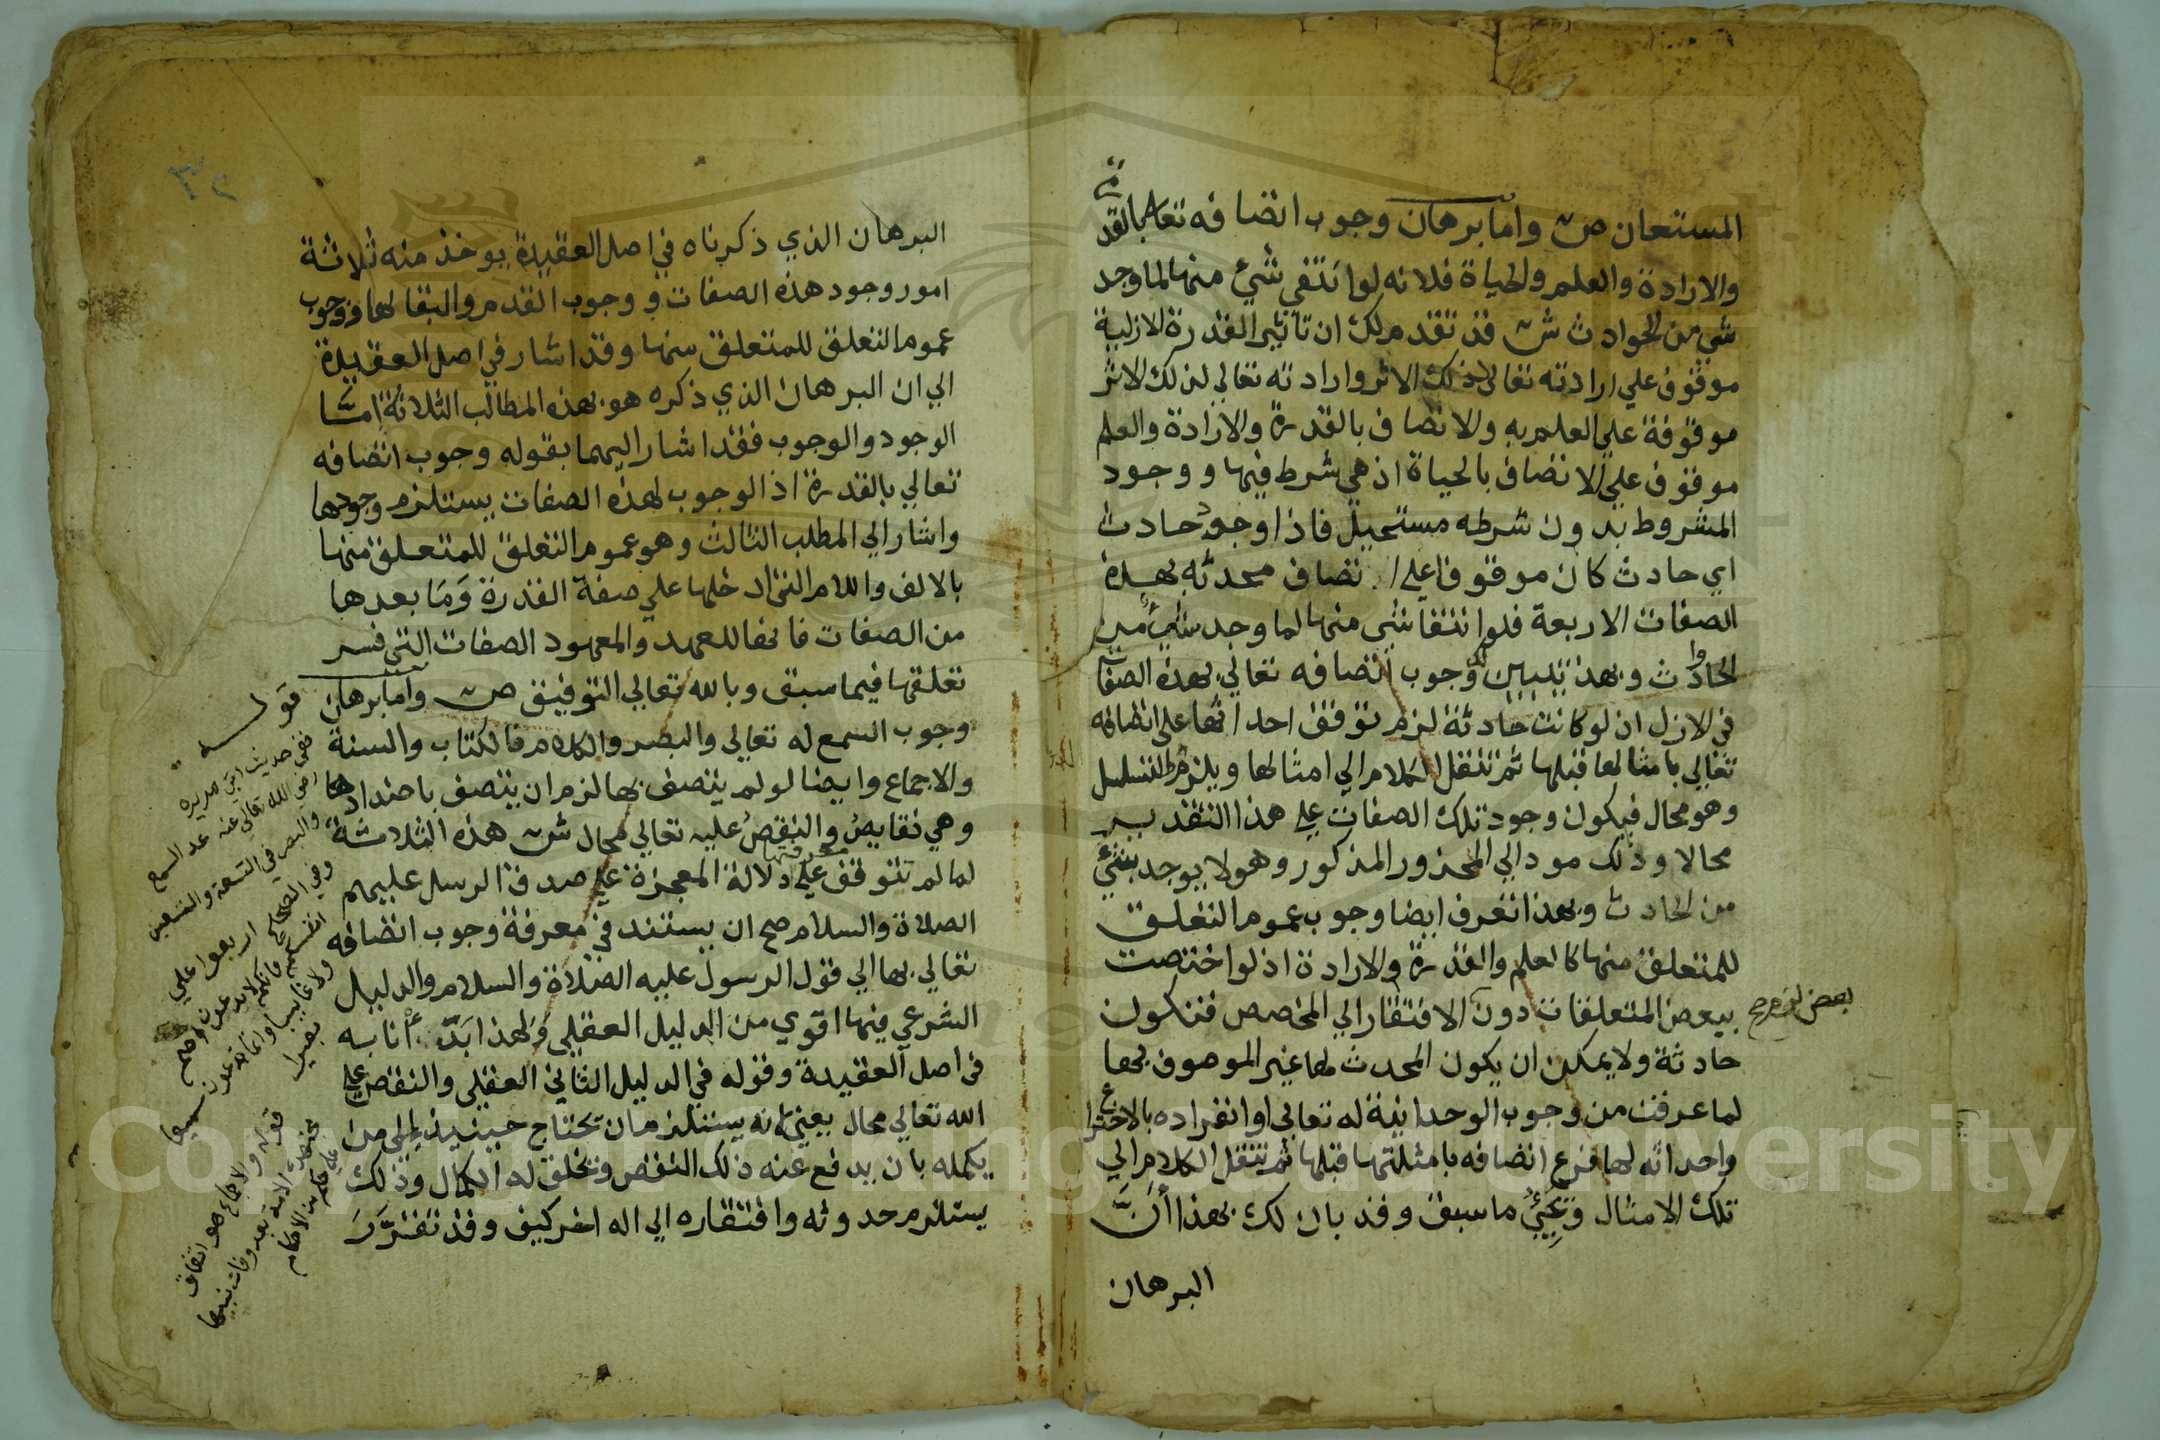 المستعان ص واما برهان وجوب اتصافه تعالى بالقدرة
والارادة والعلم والحياة فلانه لو انتفى شيء منها لما وجد
شي من الحوادث ش قد تقدم لك ان تاثير القدرة الازلية
موقوف علي ارادته تعالى لذلك الاثر وارادته تعالي لذلك الاثر
موقوفة علي العلم به والاتصاف بالقدرة والارادة والعلم
موقوف علي الاتصاف بالحياة اذ هي شرط فيها ووجود
المشروط بدون شرطه مستحيل فاذا وجود حادث
اي حادث كان موقوفا علي اتصاف محدثه بهذة
الصفات الاربعة فلو انتفا شي منها لما وجد شيء من
الحوادث وبهذا تبين لك وجوب اتصافه تعالي بهذه الصفات
في الازل ان لو كانت حادثة لزم توقف احداثها على اتصافه
تعالي بامثالها قبلها ثم تنتقل الكلام الي امثالها ويلزم التسلسل
وهو محال فيكون وجود تلك الصفات على هذا التقدير
محالا وذلك مودالي المحذور المذكور وهو لا يوجد شيء
من الحادث وبهذا تعرف ايضا وجوب عموم التعلق
للمتعلق منها كالعلم والقدرة والارادة اذ لو اختصت
ببعض المتعلقات دون الافتقار الي المخصص فتكون
بعض لزم
حادثة ولا يمكن ان يكون المحدث لها غير الموصوف بها
لما عرفت من وجوب الوحدانية له تعالى وانفراده بالاختراع
واحداثه لها فرع اتصافه بامثلتها قبلها ثم تنتقل الكلام الي
تلك الامثال ويجيء ما سبق وقد بان لك بهذا أنَّ
البرهان
٣٢
البرهان الذي ذكرناه في اصل العقيدة يوخذ منه ثلاثة
امور وجود هذه الصفات ووجوب القدم والبقا لها ووجوب
عموم التعلق للمتعلق منها وقد اشار في اصل العقيدة
الي ان البرهان الذي ذكره هو بهذه المطالب الثلاثة امَّا
الوجود والوجوب فقد اشار اليهما بقوله وجوب اتصافه
تعالي بالقدرة اذ الوجوب لهذه الصفات يستلزم وجودها
واشار الي المطلب الثالث وهو عموم التعلق للمتعلق منها
بالالف واللام التي ادخلها علي صفة القدرة وَمَا بعدها
من الصفات فانها للعهد والمعهود الصفات التي فسر
تعلقها فيما سبق وبالله تعالي التوفيق ص واما برهان
وجوب السمع له تعالي والبصر والكلام فالكتاب والسنة
والاجماع وايضا لو لم يتصف بها لزم ان يتصف باضدادها
وهي نقايصُ والنقصُ عليه تعالي محال ش هذه الثلاثة
لما لم تتوقف معرفتها علي دلالة المعجزة على صدق الرسل عليهم
الصلاة والسلام صح ان يستند في معرفة وجوب اتصافه
تعالي بها الي قول الرسول عليه الصلاة والسلام والدليل
الشرعي فيها اقوي من الدليل العقلي ولهذا ابدأنا به
في اصل العقيدة وقوله في الدليل الثاني العقلي والنقص على
الله تعالي محال يعني لانه يستلزم ان تحتاج حينيذ الى من
يكمله بان يدفع عنه ذلك النقص ويخلق له الكمال وذلك
يستلزم حدوثه وافتقاره الي اله اخر كيف وقد تقرَّرَ
قوله
ففي حديث ابي هريره
رضي الله تعالى عنه عد السمع
والبصر في التسعة والتسعين
وفي الصحيح اربعوا علي
انفسكم فانكم لا تدعون اصم
ولا غايبا وانما تدعون سميعا
بصيرا
قوله والاجماع هو اتفاق
مجتهدي الامة بعد وفات نبيها
علي حكم من الاحكام